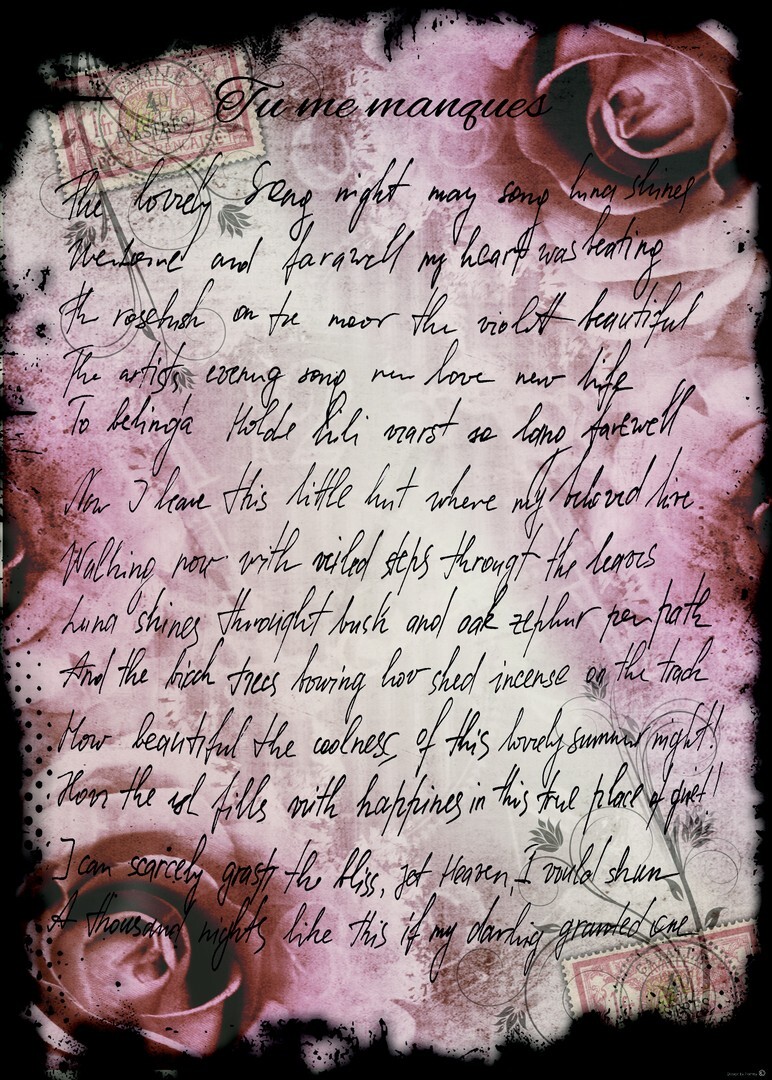 Tu me manques
The lovely Song night may song luna shines
Welcome and farawell my heart was beating
The rosebush on tre moor the violett beautiful
The artists evening song new love new life
To belinda Holde Lili warst so lang farewell
Now I leave this little hut where my beloved live
Walking now with veiled steps througt the leaves
Luna shines throught bush and oak zephur per path
And the birch trees bowing how shed incense on the track
How beautiful the coolness, of this lovely summer night!
How the sol fills with happines in this true place of quiet!
I can scarcely grasp the bliss, jet Heaven, I would shun
A thousand nights like this if my darling granted one